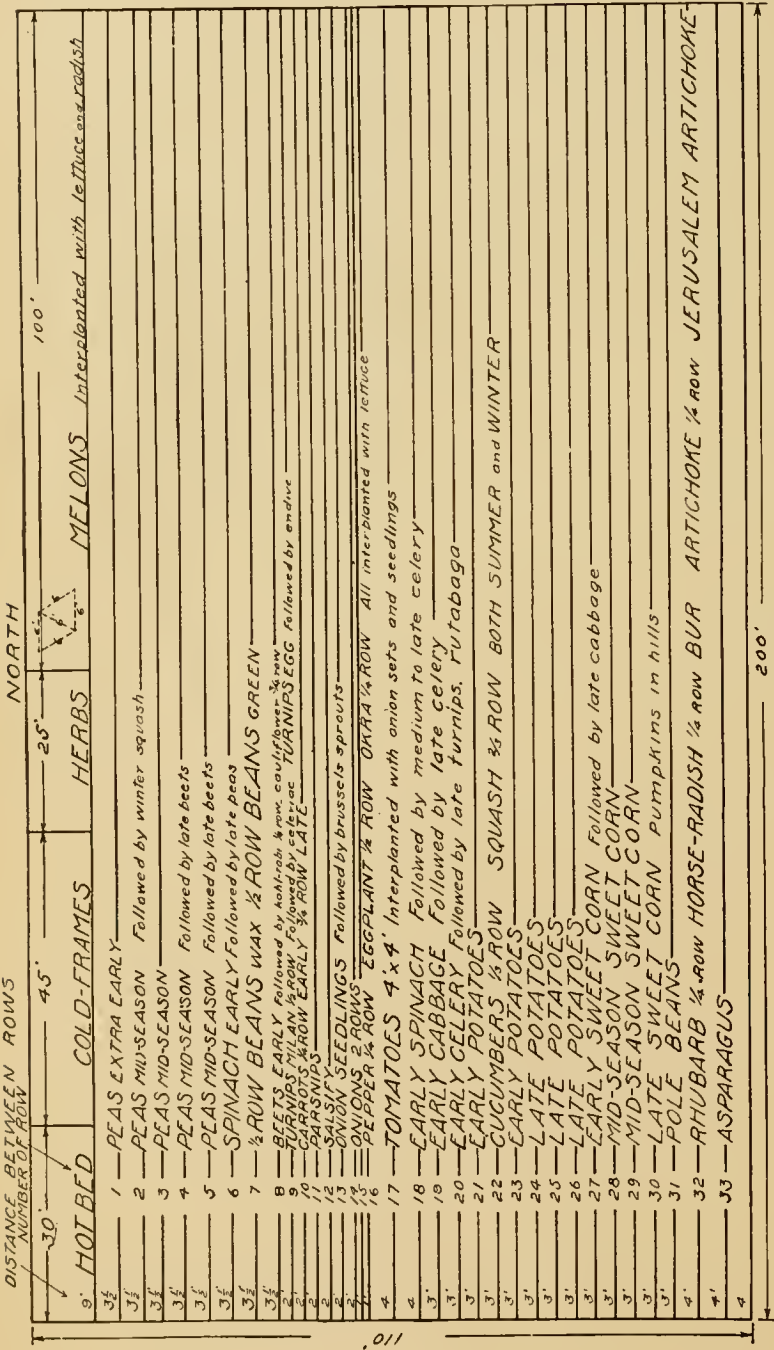 NORTH
DISTANCE BETWEEN ROWS
NUMBER OF ROW
30' 45' 25' 100'
HOT BED COLD-FRAMES HERBS MELONS Interplanted with lettuce and radish
9'
3½' 1 PEAS EXTRA EARLY
3½' 2 PEAS MID-SEASON Followed by winter squash
3½' 3 PEAS MID-SEASON
3½' 4 PEAS MID-SEASON Followed by late beets
3½' 5 PEAS MID-SEASON Followed by late beets
3½' 6 SPINACH EARLY Followed by late peas
3½' 7 ½ ROW BEANS WAX ½ ROW BEANS GREEN
3½' 8 BEETS EARLY Followed by kohl-rabi ¼ row, cauliflower ¾ row
2' 9 TURNIPS MILAN ½ ROW Followed by celeriac TURNIPS EGG Followed by endive
2' 10 CARROTS ¼ ROW EARLY ¾ ROW LATE
2' 11 PARSNIPS
2' 12 SALSIFY
2' 13 ONION SEEDLINGS Followed by brussels sprouts
2' 14 ONIONS 2 ROWS
15
16 PEPPER ¼ ROW EGGPLANT ½ ROW OKRA ¼ ROW All interplanted with lettuce
4 17 TOMATOES 4'x4' Interplanted with onion sets and seedlings
4 18 EARLY SPINACH Followed by medium to late celery
3' 19 EARLY CABBAGE Followed by late celery
3' 20 EARLY CELERY Followed by late turnips, rutabaga
3' 21 EARLY POTATOES
3' 22 CUCUMBERS ⅓ ROW SQUASH ⅔ ROW BOTH SUMMER and WINTER
3' 23 EARLY POTATOES
3' 24 LATE POTATOES
3' 25 LATE POTATOES
3' 26 LATE POTATOES
3' 27 EARLY SWEET CORN Followed by late cabbage
3' 28 MID-SEASON SWEET CORN
3' 29 MID-SEASON SWEET CORN
3' 30 LATE SWEET CORN Pumpkins in hills
3' 31 POLE BEANS
4' 32 RHUBARB ¼ ROW HORSE-RADISH ¼ ROW BUR ARTICHOKE ¼ ROW JERUSALEM ARTICHOKE
4' 33 ASPARAGUS
4
110'
200'